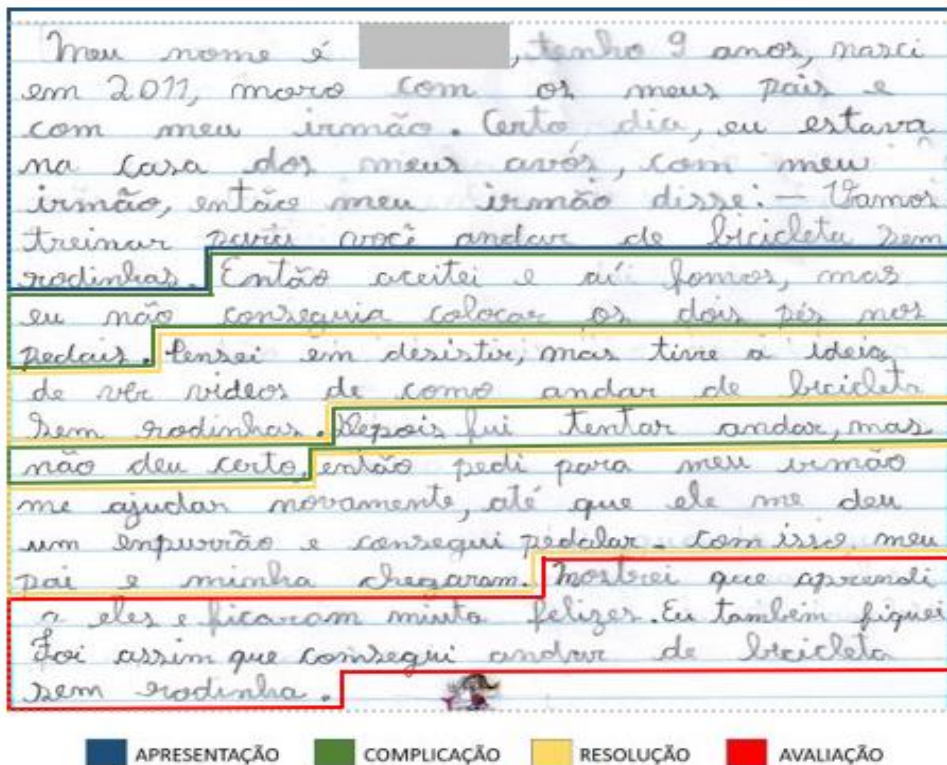 Meu nome é , tenho 9 anos, nasci
em 2011, moro com os meus pais e
com meu irmão. Certo dia, eu estava
na casa dos meus avós, com meu
irmão, então meu irmão disse: — Vamos
treinar para você andar de bicicleta sem
rodinhas. Então aceitei e aí fomos, mas
eu não conseguia colocar os dois pés nos
pedais. Pensei em desistir, mas tive a ideia
de ver videos de como andar de bicicleta
sem rodinhas. Depois fui tentar andar, mas
não deu certo, então pedi para meu irmão
me ajudar novamente, até que ele me deu
um enpurrão e consegui pedalar. Com isso, meu
pai e minha chegaram. Mostrei que aprendi
a eles e ficaram miuto felizes. Eu também fiquei
Foi assim que comsegui andar de bicicleta
sem rodinha.
APRESENTAÇÃO COMPLICAÇÃO RESOLUÇÃO AVALIAÇÃO